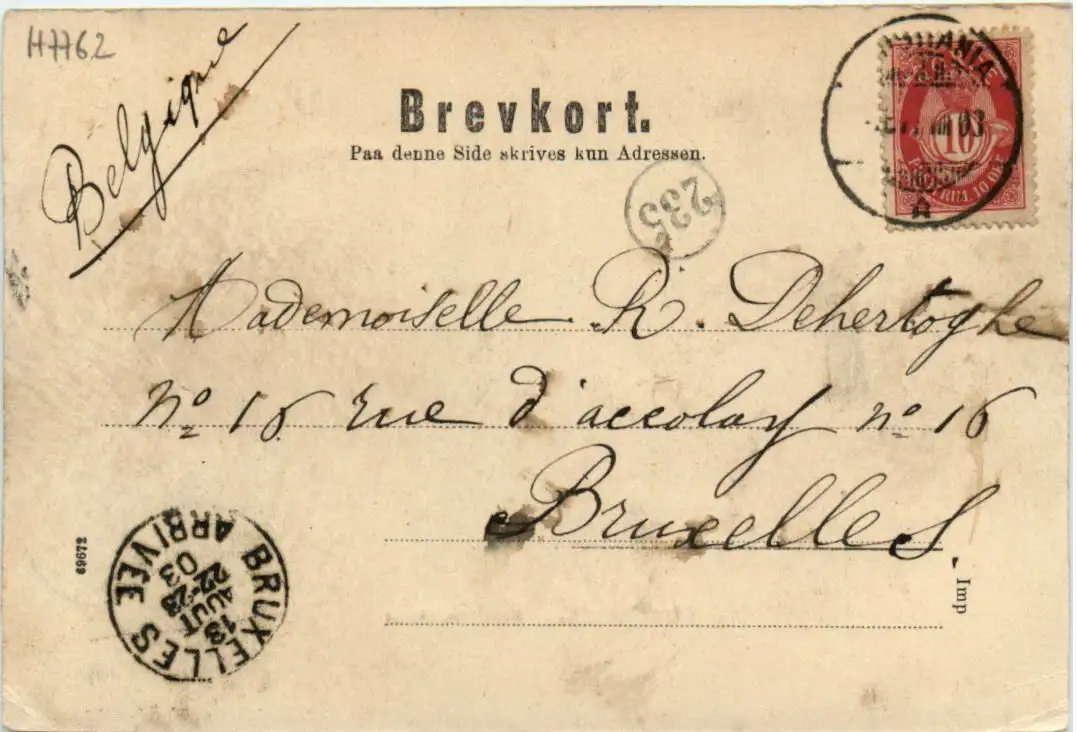 H7762
Belgique
Brevkort.
Paa denne Side skrives kun Adressen.
10
03
A
235
Mademoiselle R. Dehertoghe
No 16 rue d'accolay no 16
Bruxelles.
BRUXELLES
ARRIVÉE
13
AOUT
22-23
03
69672
Imp